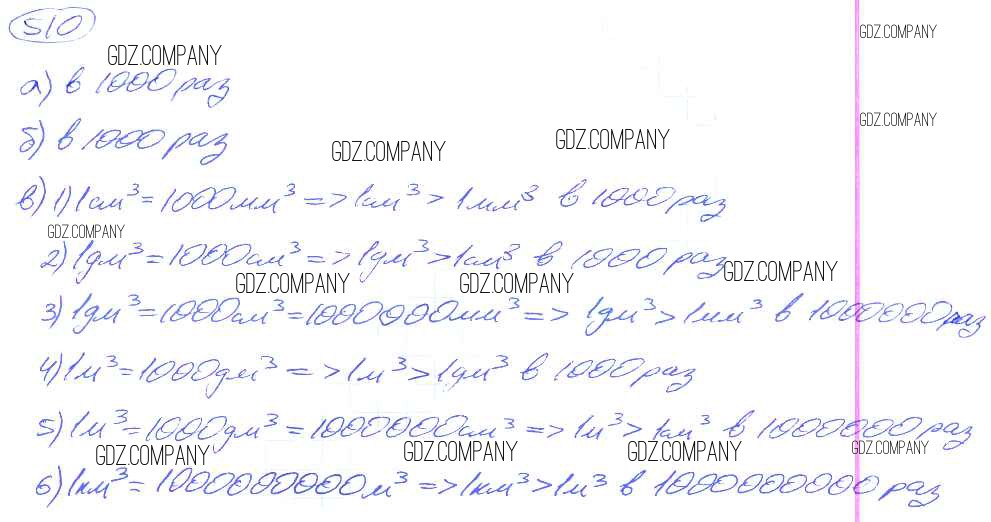 510
GDZ.COMPANY
GDZ.COMPANY
а) в 1000 раз
GDZ.COMPANY
б) в 1000 раз
GDZ.COMPANY GDZ.COMPANY
в) 1) 1см³ = 1000мм³ => 1см³ > 1мм³ в 1000 раз
GDZ.COMPANY
2) 1дм³ = 1000см³ => 1дм³ > 1см³ в 1000 раз
GDZ.COMPANY GDZ.COMPANY GDZ.COMPANY
3) 1дм³ = 1000см³ = 1000000мм³ => 1дм³ > 1мм³ в 1000000 раз
4) 1м³ = 1000дм³ => 1м³ > 1дм³ в 1000 раз
5) 1м³ = 1000дм³ = 1000000см³ => 1м³ > 1см³ в 1000000 раз
GDZ.COMPANY GDZ.COMPANY GDZ.COMPANY GDZ.COMPANY
6) 1км³ = 1000000000м³ => 1км³ > 1м³ в 1000000000 раз